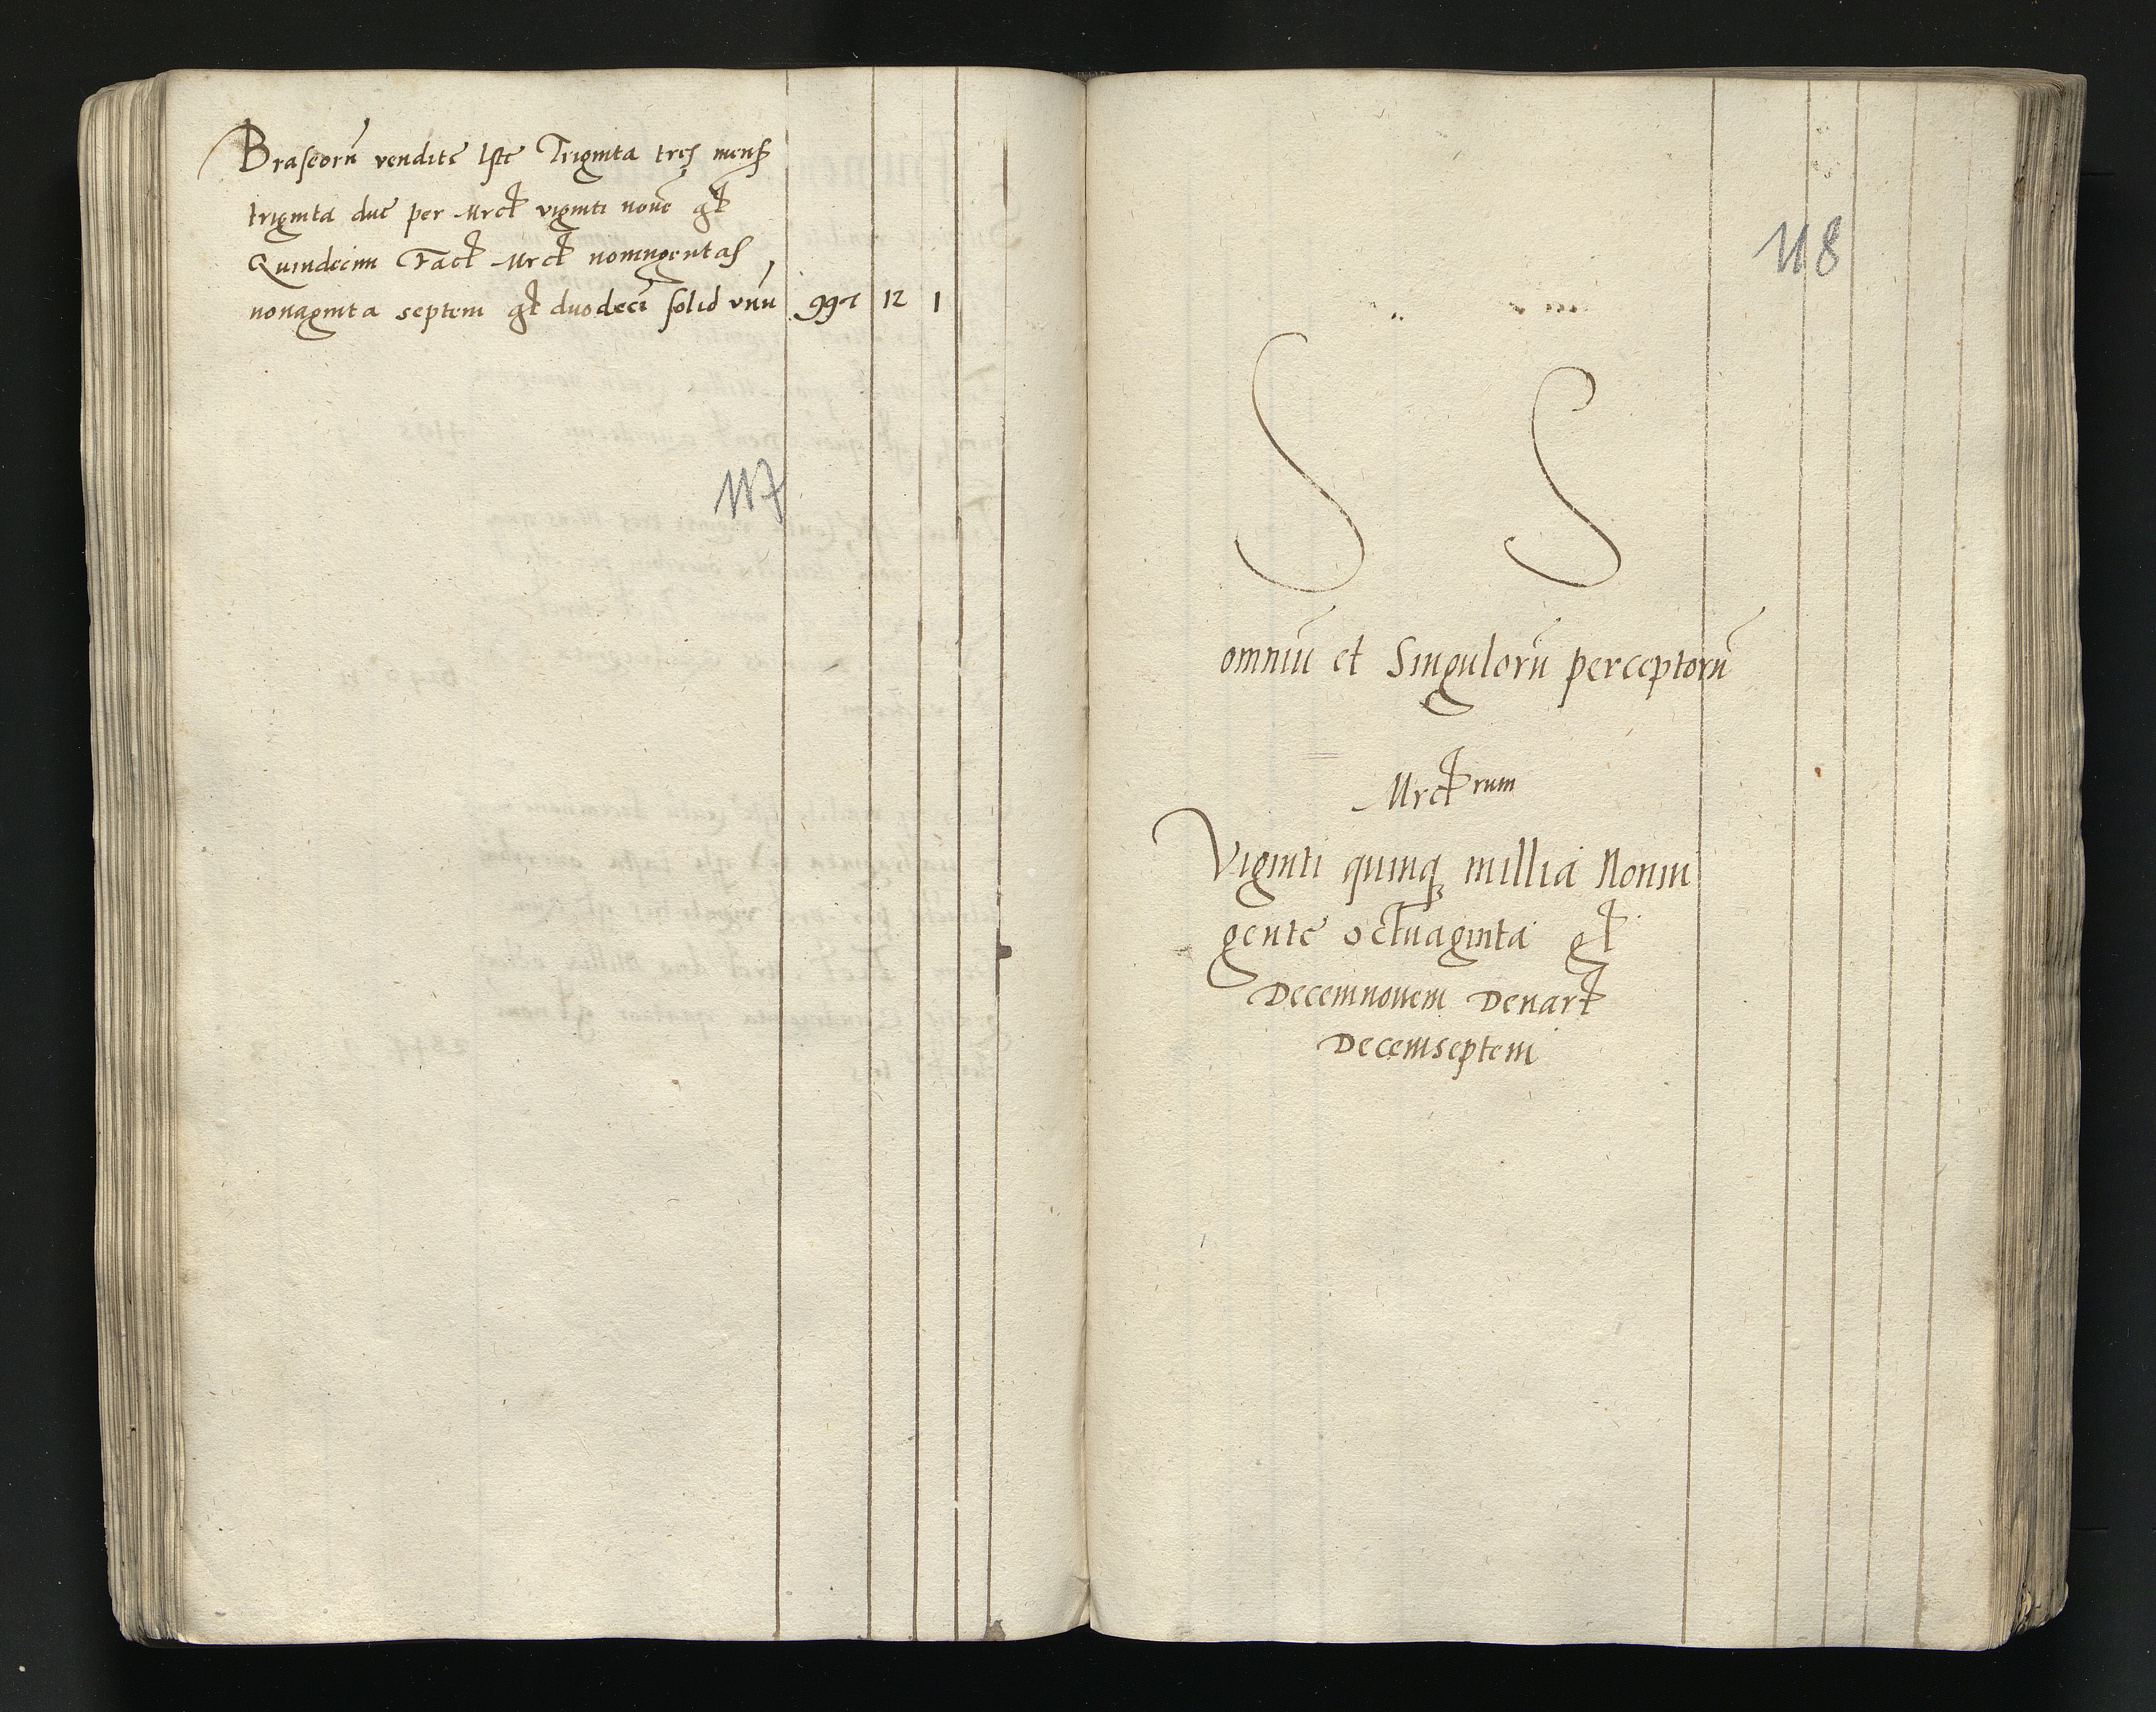 Braseorū vendite lste Triginta tres mens
triginta due per Mrct viginti nove gt
Quindecim Fact Mrct nomngentas
nonaginta septem gt duodeci solid vnū 997 12 1
117
118
S S
omniū et Singulorū perceptorū
Mrctrum
Viginti quinq millia Nonin
gente octuaginta gt
Decemnovem Denart
Decemseptem